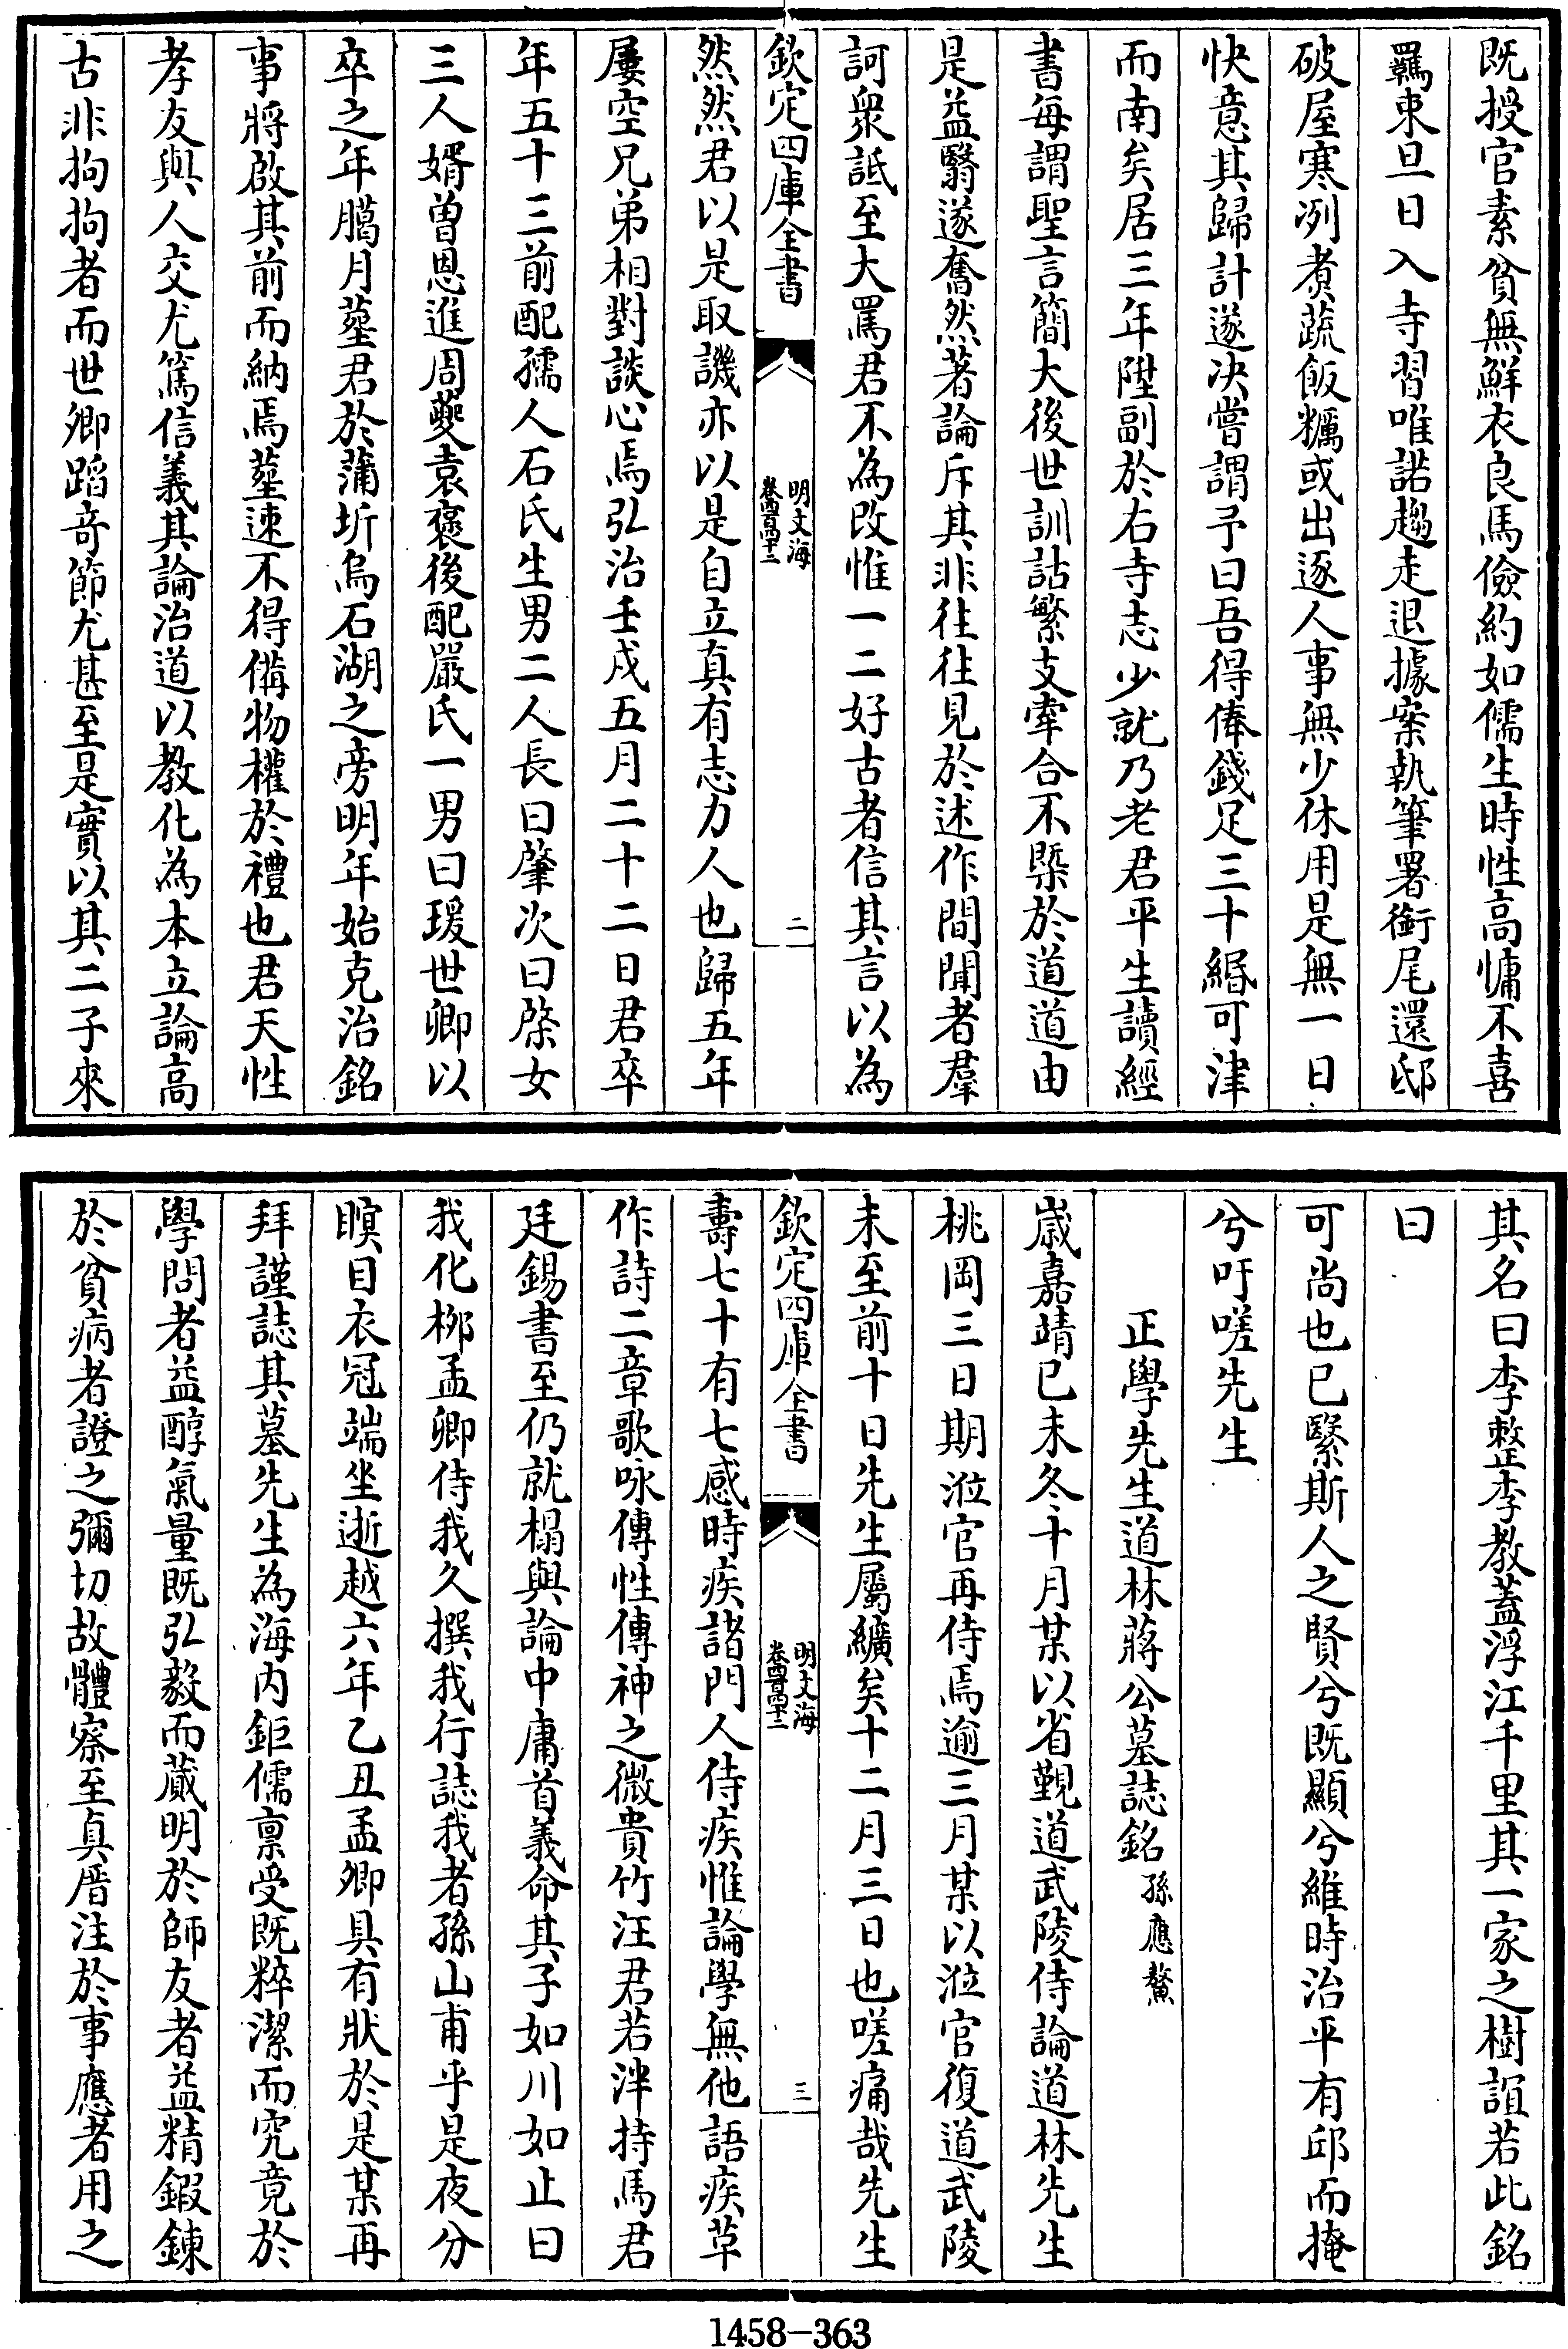 既授官素貧無鮮衣良馬儉約如儒生時性高慵不喜
羈束旦日入寺習唯諾趨走退據案執筆署銜尾還邸
破屋寒冽煑蔬飯糲或出逐人事無少休用是無一日
快意其歸計遂决嘗謂予曰吾得俸錢足三十緡可津
而南矣居三年陞副於右寺志少就乃老君平生讀經
書每謂聖言簡大後世訓詁繁支牽合不槩於道道由
是益翳遂奮然著論斥其非往往見於述作間聞者羣
訶衆詆至大罵君不為改惟一二好古者信其言以為
欽定四庫全書
明文海
卷四百四十二
二
然然君以是取譏亦以是自立真有志力人也歸五年
屢空兄弟相對談心焉弘治壬戌五月二十二日君卒
年五十三前配孺人石氏生男二人長曰肇次曰棨女
三人婿曽恩進周夔袁襃後配嚴氏一男曰瑗世卿以
卒之年臈月塟君於蒲圻烏石湖之旁明年始克治銘
事將啟其前而納焉塟速不得備物權於禮也君天性
孝友與人交尤篤信義其論治道以教化為本立論高
古非拘拘者而世卿蹈竒節尤甚至是實以其二子來
其名曰李整李教蓋浮江千里其一家之樹誼若此銘
曰
可尚也已繄斯人之賢兮既顯兮維時治平有邱而掩
兮吁嗟先生
正學先生道林蔣公墓誌銘 孫應鰲
嵗嘉靖已未冬十月某以省覲道武陵侍論道林先生
桃岡三日期涖官再侍焉逾三月某以涖官復道武陵
未至前十日先生屬纊矣十二月三日也嗟痛哉先生
欽定四庫全書
明文海
卷四百四十二
三
壽七十有七感時疾諸門人侍疾惟論學無他語疾草
作詩二章歌咏傳性傳神之微貴竹汪君若泮持馬君
廷錫書至仍就榻與論中庸首義命其子如川如止曰
我化栁孟卿侍我久撰我行誌我者孫山甫乎是夜分
瞑目衣冠端坐逝越六年乙丑孟卿具有狀於是某再
拜謹誌其墓先生為海内鉅儒禀受既粹潔而究竟於
學問者益醇氣量既弘毅而蕆明於師友者益精鍜鍊
於貧病者證之彌切故體察至真厝注於事應者用之
1458-363